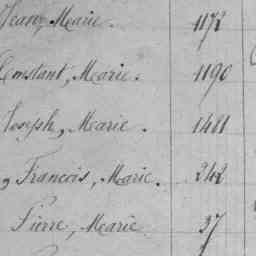 Jean, Marie. 1172
Constant, Marie. 1190
Joseph, Marie. 1481
, François, Marie. 242
Pierre, Marie 37